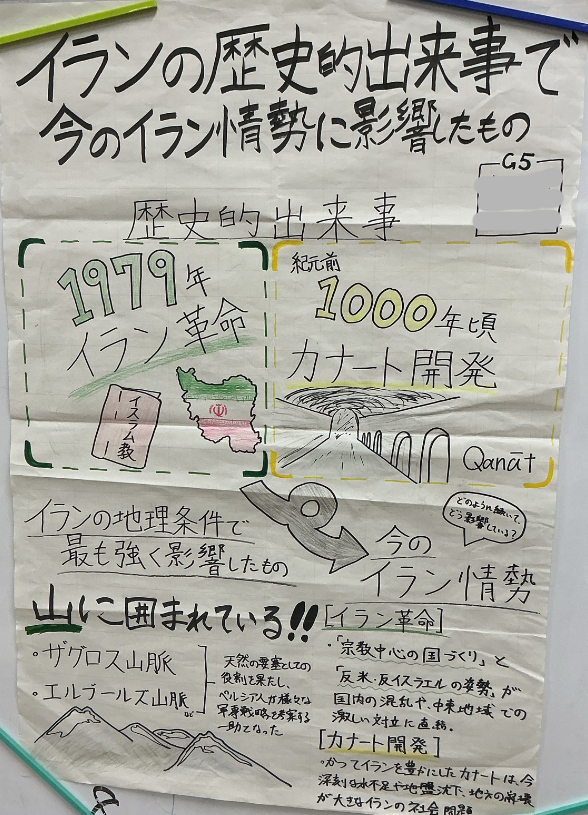 イランの歴史的出来事で
今のイラン情勢に影響したもの
G5
歴史的出来事
1979年
イラン革命
イスラム教
紀元前
1000年頃
カナート開発
Qanāt
イランの地理条件で
最も強く影響したもの
どのように続いて、
どう影響している?
今の
イラン情勢
山に囲まれている!!
・ザグロス山脈
・エルブールズ山脈
など
天然の要塞としての
役割を果たし、
ペルシア人が様々な
軍事戦略を考案する
一助となった
[イラン革命]
・「宗教中心の国づくり」と
「反米・反イスラエルの姿勢」が
国内の混乱や、中東地域での
激しい対立に直結。
[カナート開発]
・かつてイランを豊かにしたカナートは、今
深刻な水不足や地盤沈下、地方の崩壊
が大きなイランの社会問題